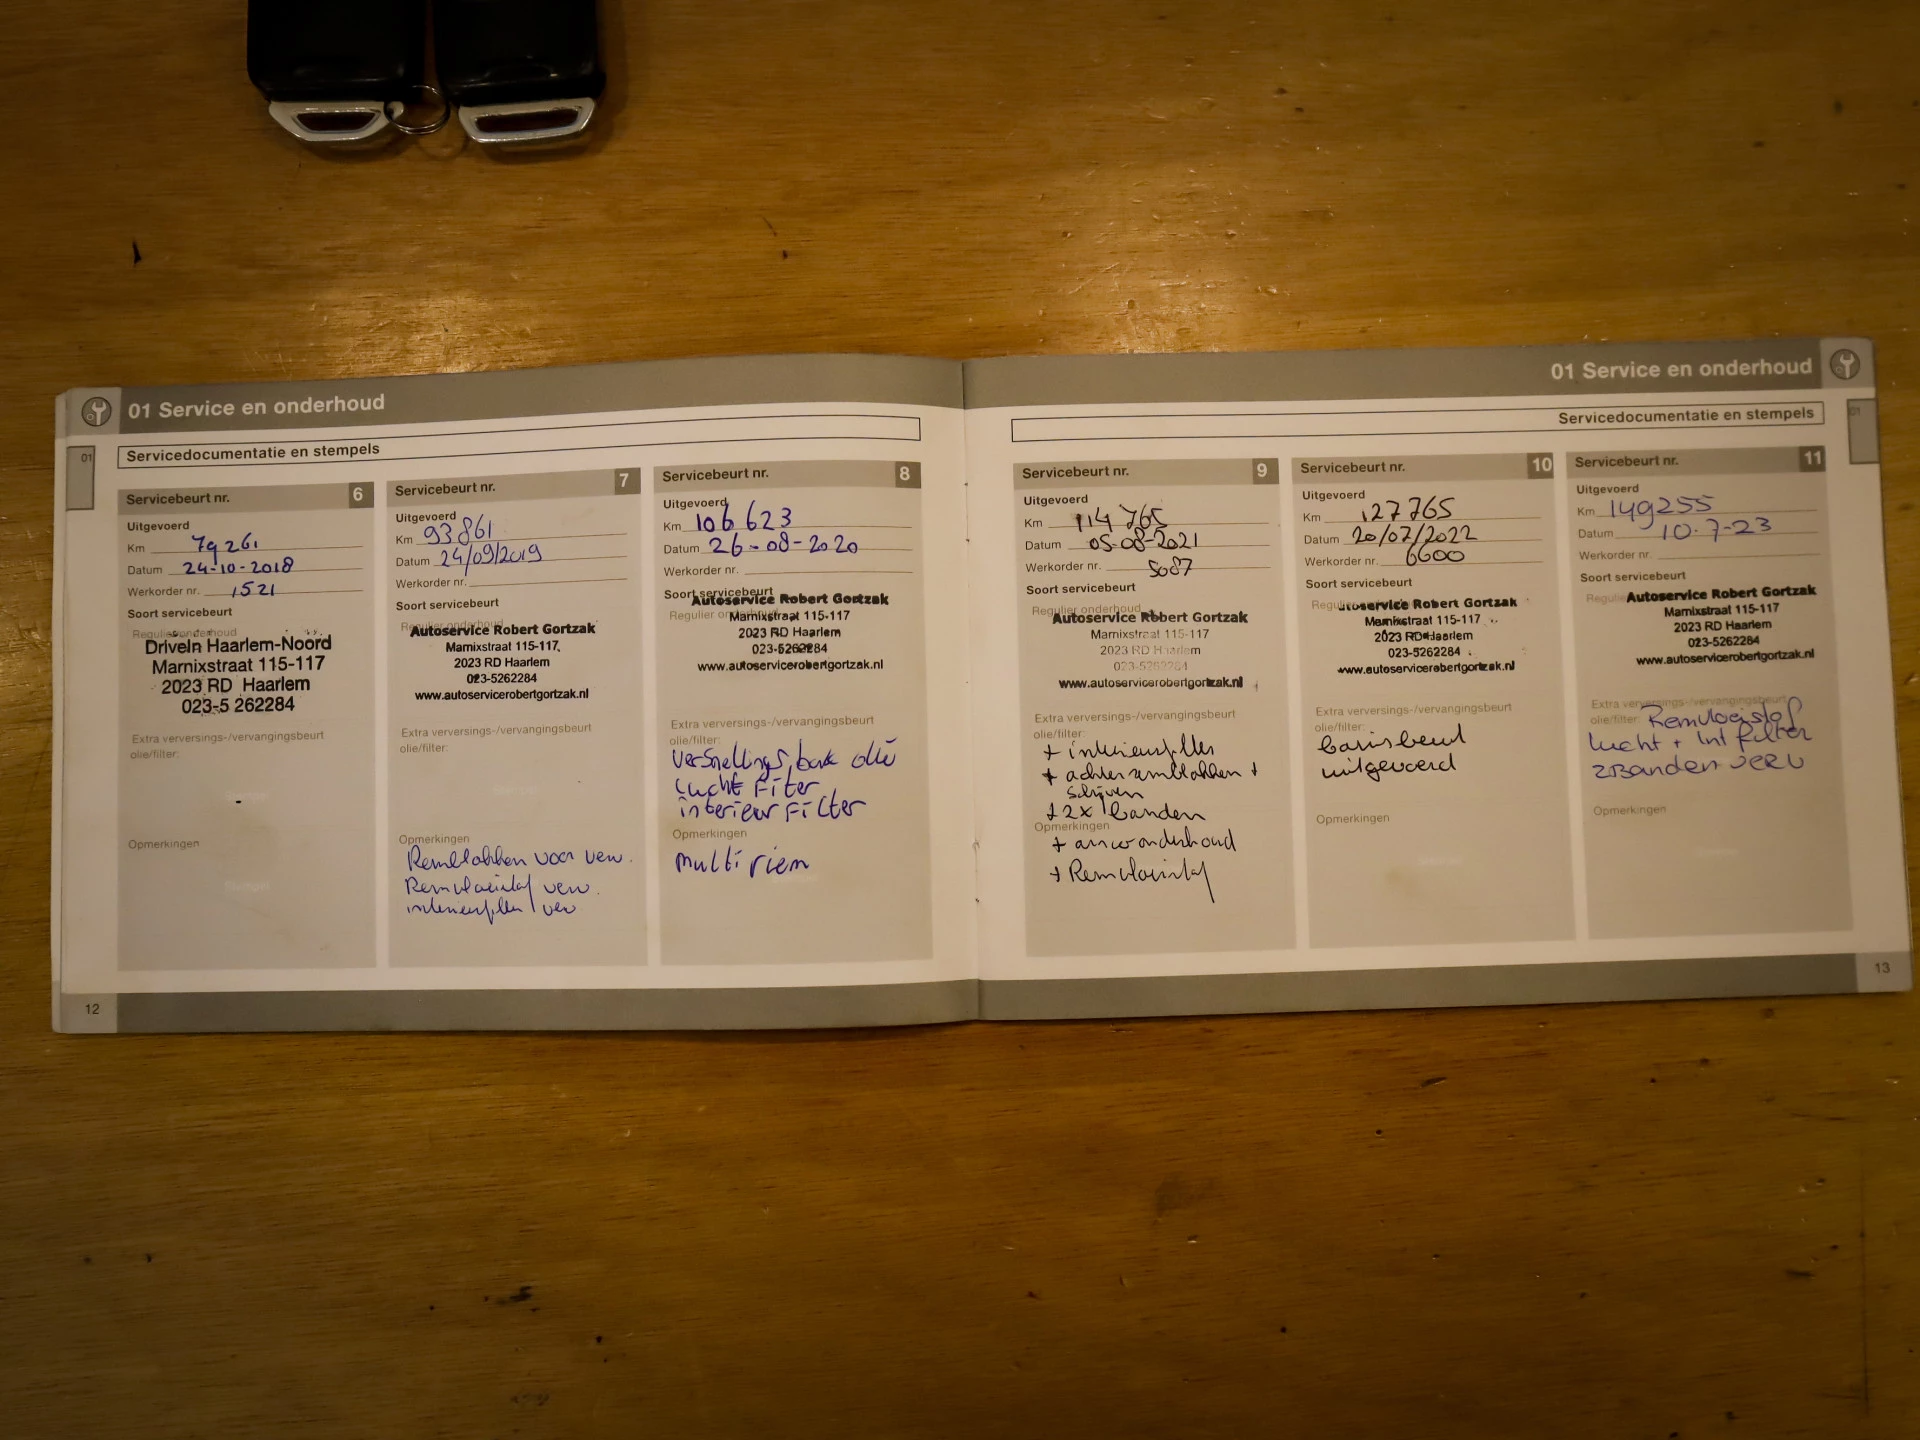 01 Service en onderhoud
01
Servicedocumentatie en stempels
Servicebeurt nr. 6
Uitgevoerd
Km 79261
Datum 24-10-2018
Werkorder nr. 1521
Soort servicebeurt
Regulier onderhoud
DriveIn Haarlem-Noord
Marnixstraat 115-117
2023 RD Haarlem
023-5 262284
Extra verversings-/vervangingsbeurt
olie/filter:
Stempel
Opmerkingen
Stempel
Servicebeurt nr. 7
Uitgevoerd
Km 93861
Datum 24/09/2019
Werkorder nr.
Soort servicebeurt
Regulier onderhoud
Autoservice Robert Gortzak
Marnixstraat 115-117
2023 RD Haarlem
023-5262284
www.autoservicerobertgortzak.nl
Extra verversings-/vervangingsbeurt
olie/filter:
Stempel
Opmerkingen
Remblokken voor verv.
Remvloeistof verv.
interieurfilter verv
Servicebeurt nr. 8
Uitgevoerd
Km 106623
Datum 26-08-2020
Werkorder nr.
Soort servicebeurt
Regulier onderhoud
Autoservice Robert Gortzak
Marnixstraat 115-117
2023 RD Haarlem
023-5262284
www.autoservicerobertgortzak.nl
Extra verversings-/vervangingsbeurt
olie/filter:
versnellings bak olie
lucht Filter
interieur Filter
Opmerkingen
multi riem
12
01 Service en onderhoud
01
Servicedocumentatie en stempels
Servicebeurt nr. 9
Uitgevoerd
Km 114765
Datum 05-08-2021
Werkorder nr. 5087
Soort servicebeurt
Regulier onderhoud
Autoservice Robert Gortzak
Marnixstraat 115-117
2023 RD Haarlem
023-5262284
www.autoservicerobertgortzak.nl
Extra verversings-/vervangingsbeurt
olie/filter:
+ interieurfilter
+ achter remblokken +
schijven
+ 2x banden
Opmerkingen
+ aircoonderhoud
+ Remvloeistof
Servicebeurt nr. 10
Uitgevoerd
Km 127765
Datum 20/07/2022
Werkorder nr. 6600
Soort servicebeurt
Autoservice Robert Gortzak
Marnixstraat 115-117
2023 RD Haarlem
023-5262284
www.autoservicerobertgortzak.nl
Extra verversings-/vervangingsbeurt
olie/filter:
basisbeurt
uitgevoerd
Opmerkingen
Servicebeurt nr. 11
Uitgevoerd
Km 149255
Datum 10-7-23
Werkorder nr.
Soort servicebeurt
Autoservice Robert Gortzak
Marnixstraat 115-117
2023 RD Haarlem
023-5262284
www.autoservicerobertgortzak.nl
Extra verversings-/vervangingsbeurt
olie/filter: Remvloeistof
lucht + int filter
2Banden verv
Opmerkingen
13